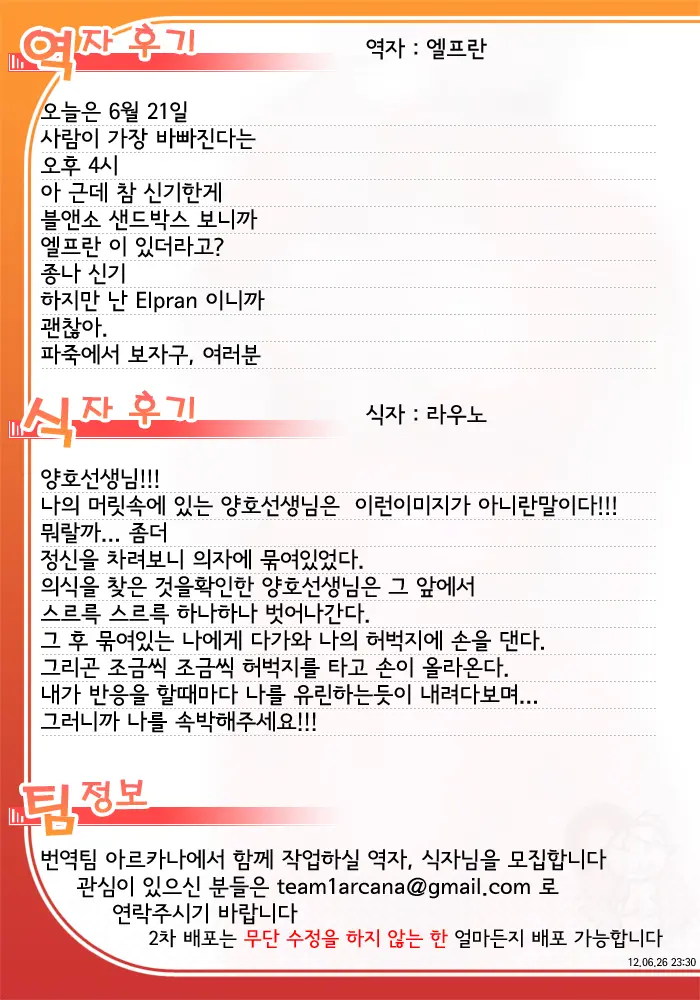 역자 후기
역자 : 엘프란
오늘은 6월 21일
사람이 가장 바빠진다는
오후 4시
아 근데 참 신기한게
블앤소 샌드박스 보니까
엘프란 이 있더라고?
종나 신기
하지만 난 Elpran 이니까
괜찮아.
파죽에서 보자구, 여러분
식자 후기
식자 : 라우노
양호선생님!!!
나의 머릿속에 있는 양호선생님은  이런이미지가 아니란말이다!!!
뭐랄까... 좀더
정신을 차려보니 의자에 묶여있었다.
의식을 찾은 것을확인한 양호선생님은 그 앞에서
스르륵 스르륵 하나하나 벗어나간다.
그 후 묶여있는 나에게 다가와 나의 허벅지에 손을 댄다.
그리곤 조금씩 조금씩 허벅지를 타고 손이 올라온다.
내가 반응을 할때마다 나를 유린하는듯이 내려다보며...
그러니까 나를 속박해주세요!!!
팀 정보
번역팀 아르카나에서 함께 작업하실 역자, 식자님을 모집합니다
관심이 있으신 분들은 team1arcana@gmail.com 로
연락주시기 바랍니다
2차 배포는 무단 수정을 하지 않는 한 얼마든지 배포 가능합니다
12.06.26 23:30